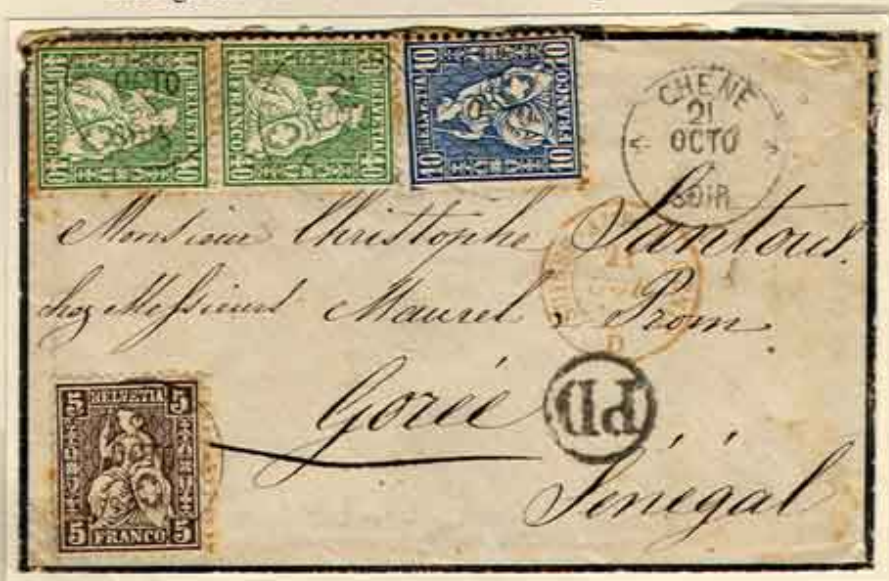 40 HELVETIA 40
40 FRANCO 40
OCTO
40 HELVETIA 40
40 FRANCO 40
21
10 HELVETIA 10
10 FRANCO 10
CHENE
21
OCTO
SOIR
Monsieur Christophe Santous.
chez Messieurs Maurel & Prom
21
D
Gorée
PD
Sénégal
5 HELVETIA 5
5 FRANCO 5